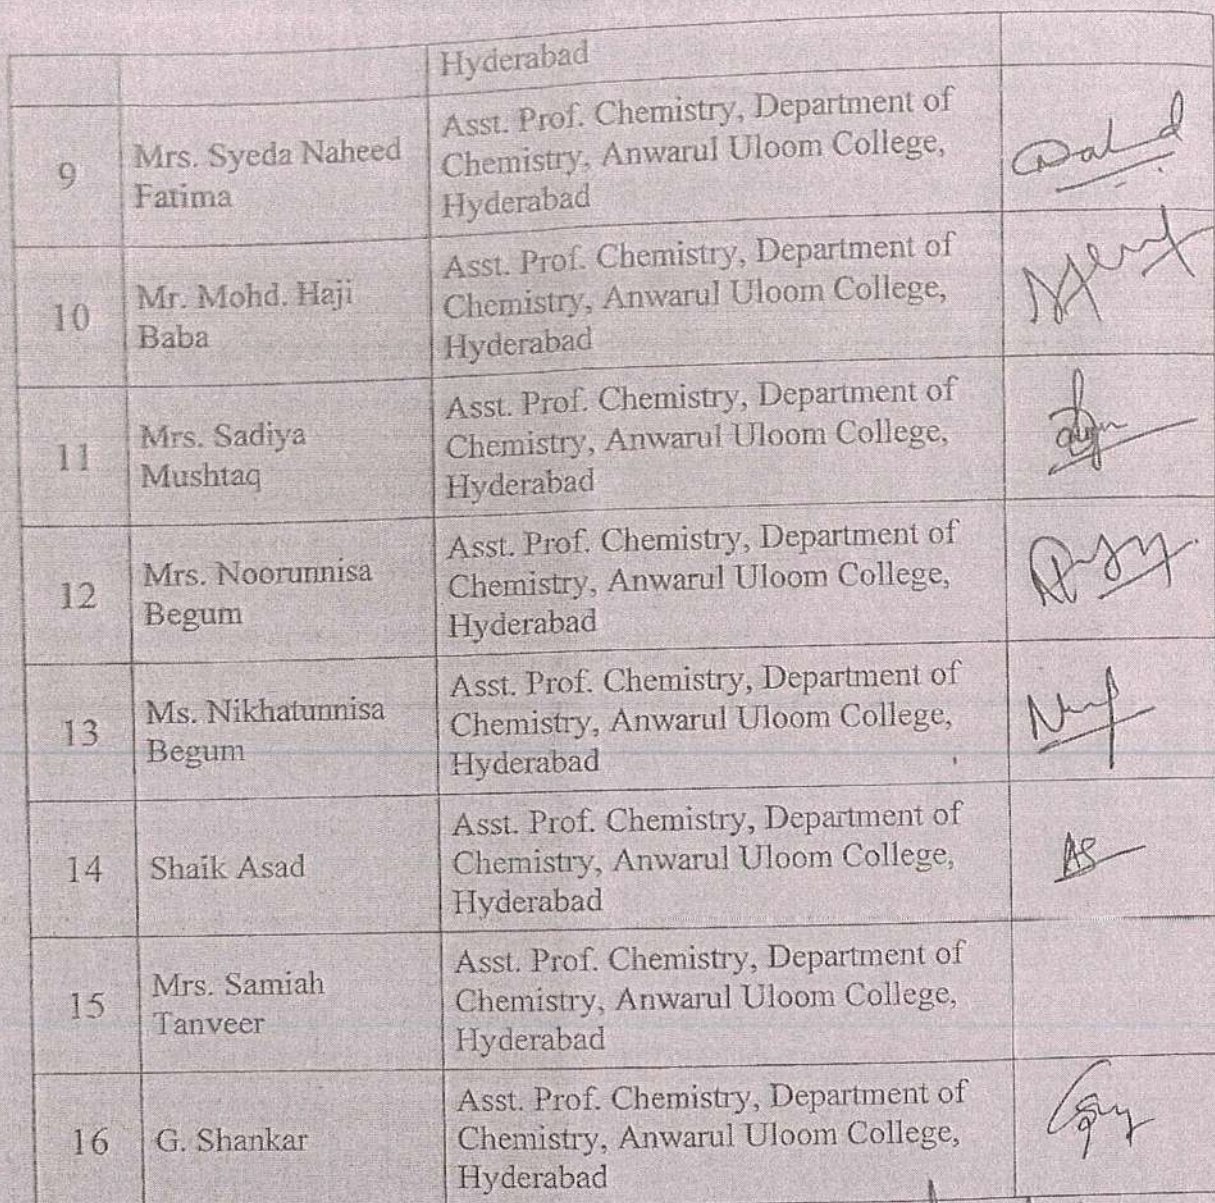 Hyderabad
9
Mrs. Syeda Naheed
Fatima
Asst. Prof. Chemistry, Department of
Chemistry, Anwarul Uloom College,
Hyderabad
10
Mr. Mohd. Haji
Baba
Asst. Prof. Chemistry, Department of
Chemistry, Anwarul Uloom College,
Hyderabad
11
Mrs. Sadiya
Mushtaq
Asst. Prof. Chemistry, Department of
Chemistry, Anwarul Uloom College,
Hyderabad
12
Mrs. Noorunnisa
Begum
Asst. Prof. Chemistry, Department of
Chemistry, Anwarul Uloom College,
Hyderabad
13
Ms. Nikhatunnisa
Begum
Asst. Prof. Chemistry, Department of
Chemistry, Anwarul Uloom College,
Hyderabad
14
Shaik Asad
Asst. Prof. Chemistry, Department of
Chemistry, Anwarul Uloom College,
Hyderabad
15
Mrs. Samiah
Tanveer
Asst. Prof. Chemistry, Department of
Chemistry, Anwarul Uloom College,
Hyderabad
16
G. Shankar
Asst. Prof. Chemistry, Department of
Chemistry, Anwarul Uloom College,
Hyderabad